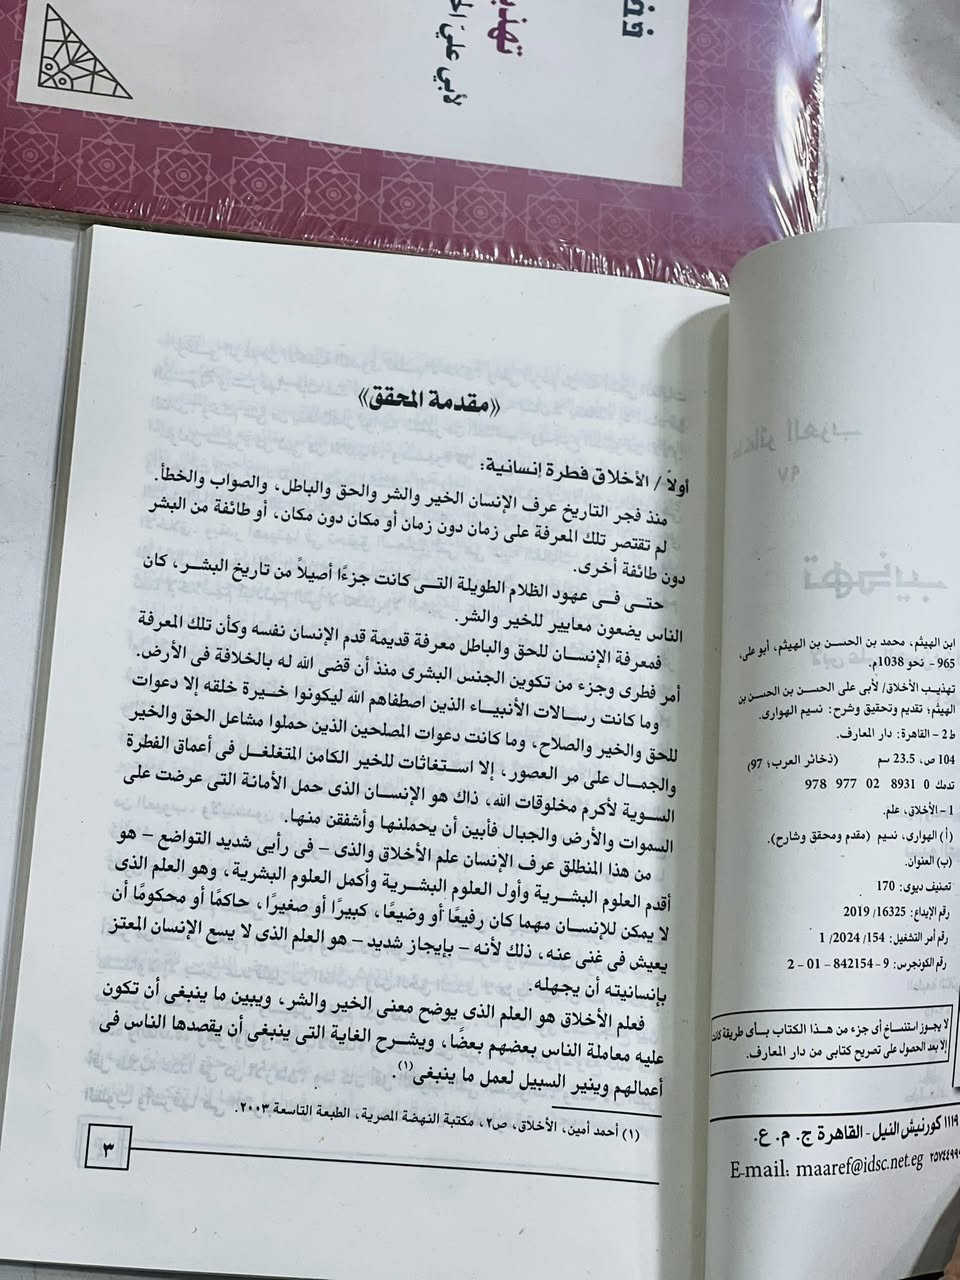 تهذيب
لأبي علي
ذخائر العرب
٩٧
تهذيب
ابن الهيثم، محمد بن الحسن بن الهيثم، أبو على،
965 - نحو 1038م.
تهذيب الأخلاق/ لأبى على الحسن بن الحسن بن
الهيثم؛ تقديم وتحقيق وشرح: نسيم الهوارى.
ط 2 - القاهرة: دار المعارف.
104 ص، 23.5 سم (ذخائر العرب؛ 97)
تدمك 0 8931 02 977 978
1 - الأخلاق، علم.
(أ) الهوارى، نسيم (مقدم ومحقق وشارح).
(ب) العنوان.
تصنيف ديوى: 170
رقم الإيداع: 16325/ 2019
رقم أمر التشغيل: 154/ 2024/ 1
رقم الكونجرس: 9 - 842154 - 01 - 2
لا يجوز استنساخ أى جزء من هذا الكتاب بأى طريقة كانت
إلا بعد الحصول على تصريح كتابى من دار المعارف.
١١١٩ كورنيش النيل - القاهرة ج. م. ع.
E-mail: maaref@idsc.net.eg
«مقدمة المحقق»
أولاً / الأخلاق فطرة إنسانية:
منذ فجر التاريخ عرف الإنسان الخير والشر والحق والباطل، والصواب والخطأ.
لم تقتصر تلك المعرفة على زمان دون زمان أو مكان دون مكان، أو طائفة من البشر
دون طائفة أخرى.
حتى فى عهود الظلام الطويلة التى كانت جزءًا أصيلاً من تاريخ البشر، كان
الناس يضعون معايير للخير والشر.
فمعرفة الإنسان للحق والباطل معرفة قديمة قدم الإنسان نفسه وكأن تلك المعرفة
أمر فطرى وجزء من تكوين الجنس البشرى منذ أن قضى الله له بالخلافة فى الأرض.
وما كانت رسالات الأنبياء الذين اصطفاهم الله ليكونوا خيرة خلقه إلا دعوات
للحق والخير والصلاح، وما كانت دعوات المصلحين الذين حملوا مشاعل الحق والخير
والجمال على مر العصور، إلا استغاثات للخير الكامن المتغلغل فى أعماق الفطرة
السوية لأكرم مخلوقات الله، ذاك هو الإنسان الذى حمل الأمانة التى عرضت على
السموات والأرض والجبال فأبين أن يحملنها وأشفقن منها.
من هذا المنطلق عرف الإنسان علم الأخلاق والذى - فى رأيى شديد التواضع - هو
أقدم العلوم البشرية وأول العلوم البشرية وأكمل العلوم البشرية، وهو العلم الذى
لا يمكن للإنسان مهما كان رفيعًا أو وضيعًا، كبيرًا أو صغيرًا، حاكمًا أو محكومًا أن
يعيش فى غنى عنه، ذلك لأنه - بإيجاز شديد - هو العلم الذى لا يسع الإنسان المعتز
بإنسانيته أن يجهله.
فعلم الأخلاق هو العلم الذى يوضح معنى الخير والشر، ويبين ما ينبغى أن تكون
عليه معاملة الناس بعضهم بعضًا، ويشرح الغاية التى ينبغى أن يقصدها الناس فى
أعمالهم وينير السبيل لعمل ما ينبغى(١).
(١) أحمد أمين، الأخلاق، ص٢، مكتبة النهضة المصرية، الطبعة التاسعة ٢٠٠٣.
٣